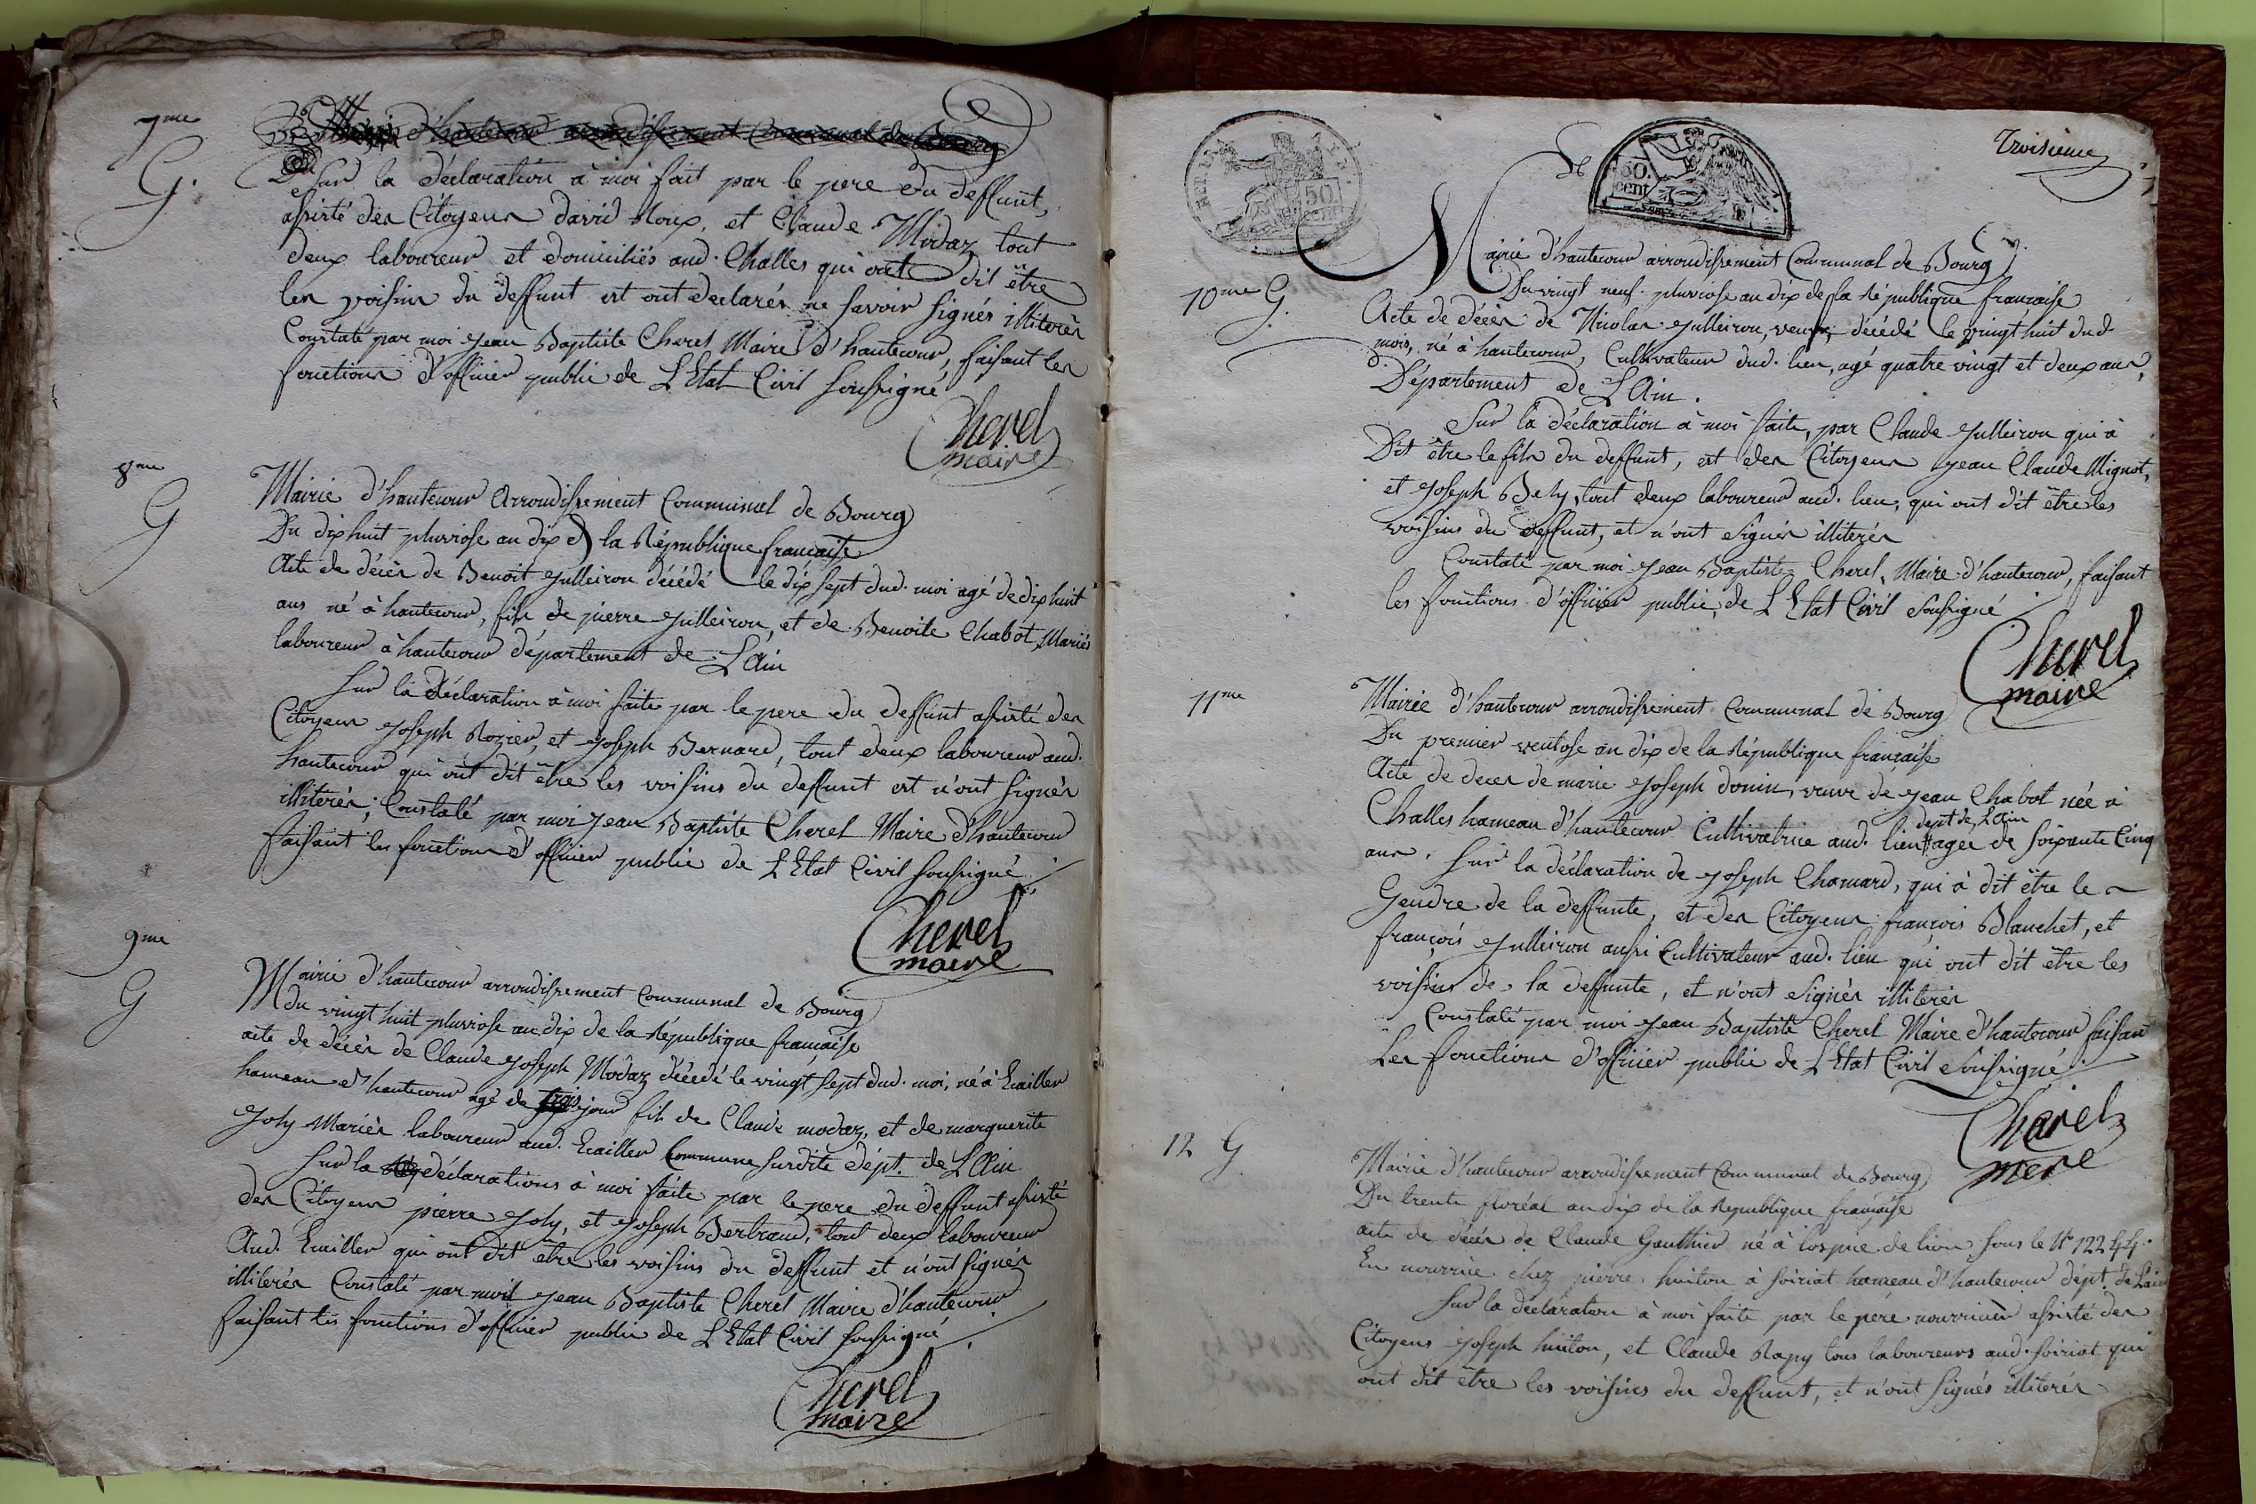 7me
G.
d'hautecour arrondissement Communal de Bourg
Sur la déclaration à moi fait par le pere du deffunt,
assisté des Citoyens david Roux, et Claude Modaz tout
deux laboureur et domiciliés aud. Challes qui ont dit être
les voisins du deffunt et ont declarés ne savoir signés illiterés
Constaté par moi Jean Baptiste Cherel Maire d'hautecour, faisant les
fonctions d'officier public de L'Etat Civil soussigné
Cherel
maire
8me
G
Mairie d'hautecour Arrondissement Communal de Bourg
Du dix huit pluviose an dix de la République française
Acte de décès de Benoit Julleiron décédé le dix sept dud. moi agé de dix huit
ans né à hautecour, fils de pierre Julleiron, et de Benoite Chabot, Mariés
laboureur à hautecour département de L'Ain
Sur la déclaration à moi faite par le pere du deffunt assisté des
Citoyens Joseph Rozier, et Joseph Bernard, tout deux laboureur aud.
hautecour qui ont dit être les voisins du deffunt et n'ont signés
illiterés; Constaté par moi Jean Baptiste Cherel Maire d'hautecour
faisant les fonctions d'officier public de L'Etat Civil soussigné
Cherel
maire
9me
G
Mairie d'hautecour arrondissement Communal de Bourg
du vingt huit pluviose an dix de la République française
acte de décès de Claude Joseph Modaz décédé le vingt sept dud. moi, né à Eculler
hameau d'hautecour agé de trois jour fils de Claude modaz, et de marguerite
Joly Mariés laboureur aud. Eculler Commune susdite dépt. de L'Ain
Sur la déclarations à moi faite par le pere du deffunt assisté
des Citoyens pierre Joly, et Joseph Bertrand, tout deux laboureur
Aud. Eculler qui ont dit être les voisins du deffunt et n'ont signés
illiterés Constaté par moi Jean Baptiste Cherel Maire d'hautecour
faisant les fonctions d'officier public de L'Etat Civil soussigné
Cherel
maire
50
cent
50
cent
Troisieme
10me G.
Mairie d'hautecour arrondissement Communal de Bourg
Du vingt neuf pluviose an dix de la République française
Acte de décès de Nicolas Julleiron, veuf, décédé le vingt huit dud
mois, né à hautecour, Cultivateur dud. lieu, agé quatre vingt et deux ans,
Département de L'Ain.
Sur la déclaration à moi faite, par Claude Julleiron qui à
Dit être le fils du deffunt, et des Citoyens Jean Claude Mignot,
et Joseph Bely, tout deux laboureur aud. lieu, qui ont dit être les
voisins du deffunt, et n'ont signés illiterés
Constaté par moi Jean Baptiste Cherel, Maire d'hautecour, faisant
les fonctions d'officier public, de L'Etat Civil soussigné
Cherel
maire
11me
Mairie d'hautecour arrondissement Communal de Bourg
Du premier ventose an dix de la République française
Acte de deces de marie Joseph donin, veuve de Jean Chabot née à
dept de L'Ain
Challes hameau d'hautecour Cultivatrice aud. lieu agée de soixante Cinq
ans. Sur la déclaration de Joseph Chamard, qui à dit être le
Gendre de la deffunte, et des Citoyens françois Blanchet, et
françois Julleiron aussi Cultivateur aud. lieu qui ont dit être les
voisins de la deffunte, et n'ont signés illiterés
Constaté par moi Jean Baptiste Cherel Maire d'hautecour faisan
Les fonctions d'officier public de L'Etat Civil soussigné
Charel
mere
12 G
Mairie d'hautecour arrondissement Communal de Bourg
Du trente floréal an dix de la République française
acte de décés de Claude Gauthier né à l'ospice de lion sous le N° 12244.
En nourrice chez pierre huiton à soiriat hameau d'hautecour dépt. de Lain
Sur la déclaration à moi faite par le pere nourricier assisté des
Citoyens Joseph huiton, et Claude Rapy tous laboureurs aud. soiriat qui
ont dit être les voisins du deffunt, et n'ont signés illiterés